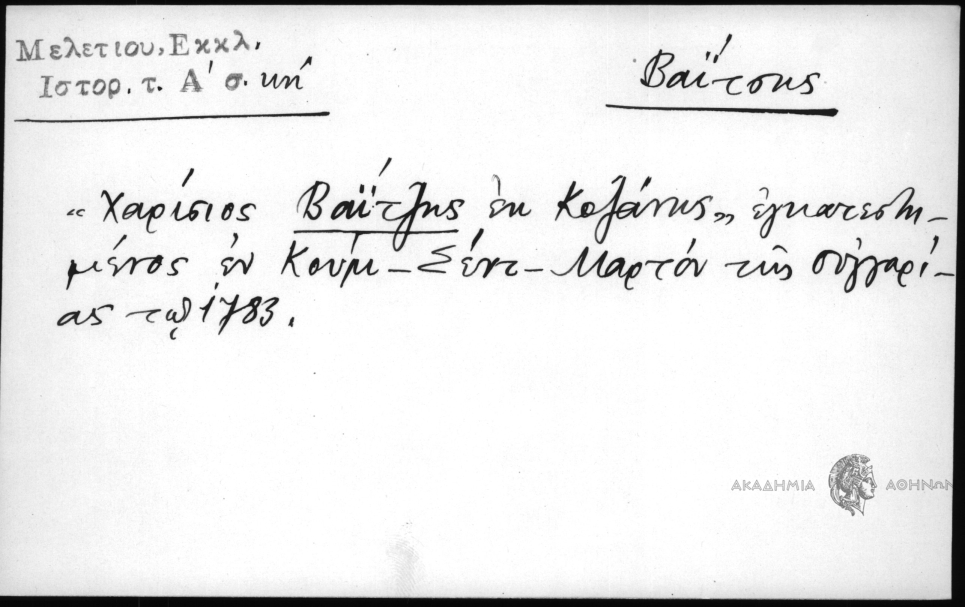 Μελετιου, Εκκλ.
Ιστορ. τ. Α' σ. κη'
Βαΐτσης
«Χαρίσιος Βαΐτζης ἐκ Κοζάνης» ἐγκατεστη-
μένος ἐν Κούμ-Σέντ-Μαρτόν τῆς Οὐγγαρί-
ας τῷ 1783.
ΑΚΑΔΗΜΙΑ ΑΘΗΝΩΝ